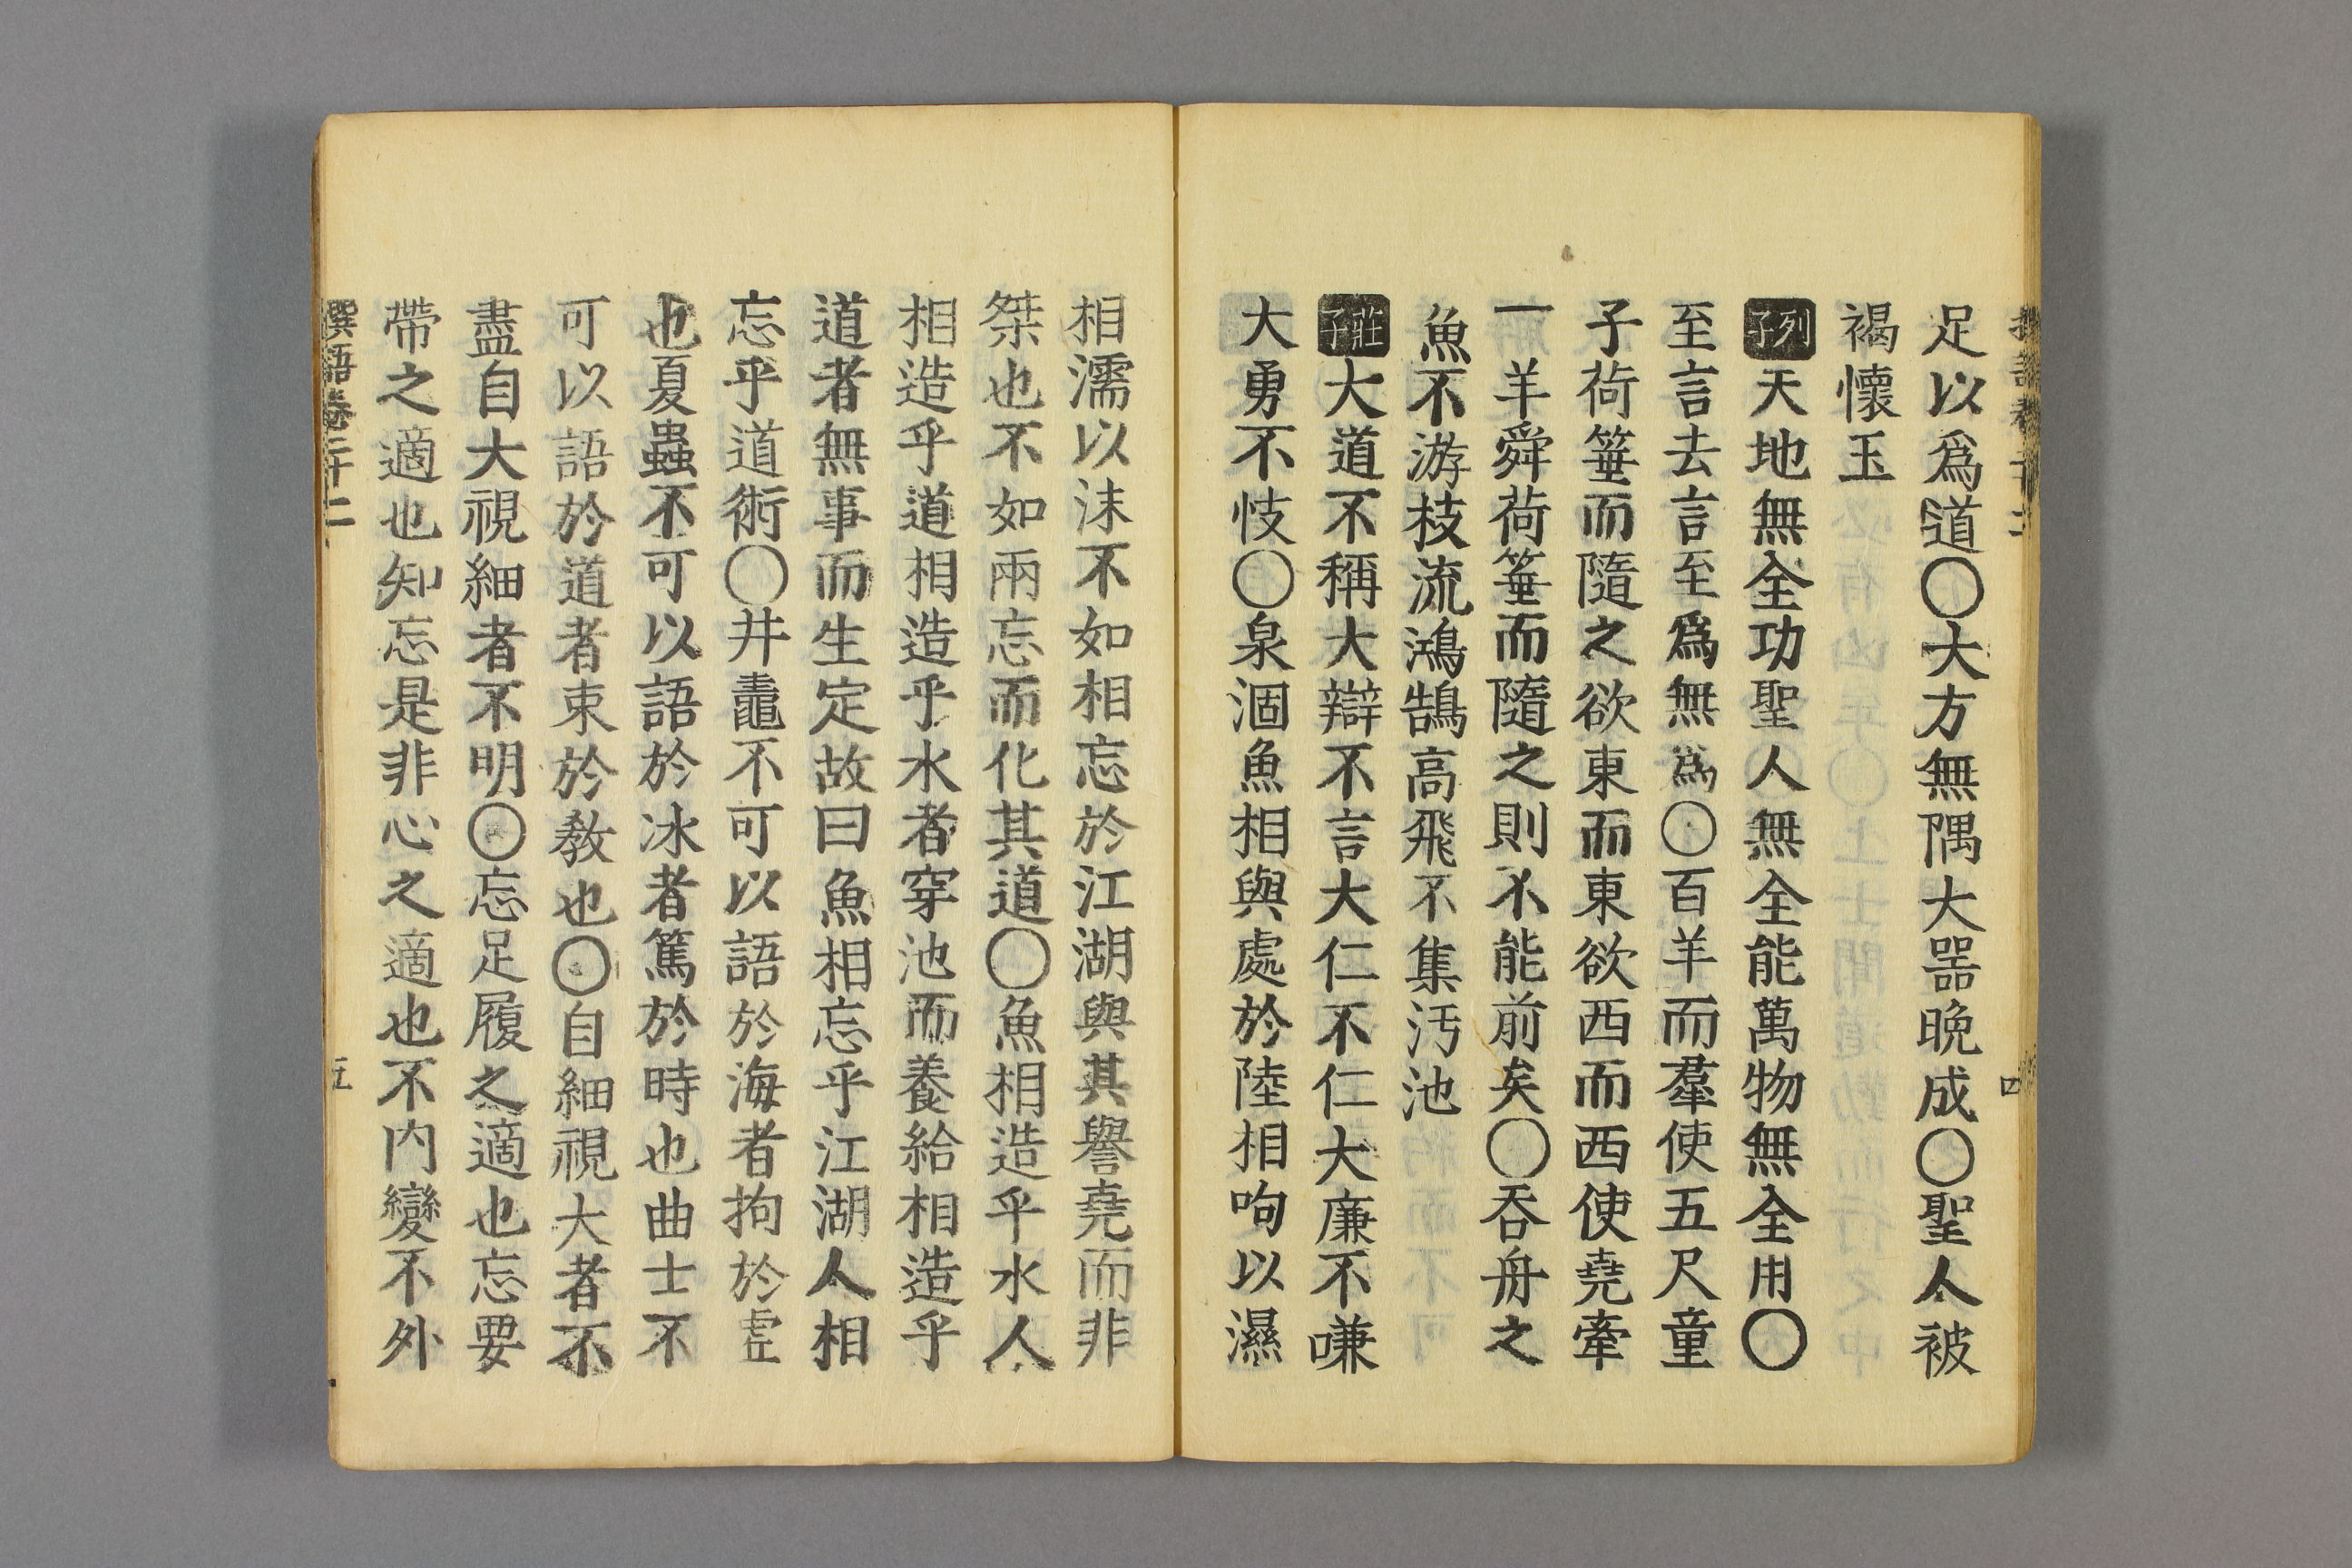 足以爲道〇大方無隅大噐晩成〇聖人被
褐懷玉
列子天地無全功聖人無全能萬物無全用〇
至言去言至爲無爲〇百羊而羣使五尺童
子荷箠而隨之欲東而東欲西而西使堯牽
一羊舜荷箠而隨之則不能前矣〇吞舟之
魚不游枝流鴻鵠高飛不集汚池
莊子大道不稱大辯不言大仁不仁大廉不嗛
大勇不忮〇泉涸魚相與處於陸相呴以濕
相濡以沫不如相忘於江湖與其譽堯而非
桀也不如兩忘而化其道〇魚相造乎水人
相造乎道相造乎水者穿池而養給相造乎
道者無事而生定故曰魚相忘乎江湖人相
忘乎道術〇井鼃不可以語於海者拘於虗
也夏蟲不可以語於冰者篤於時也曲士不
可以語於道者束於敎也〇自細視大者不
盡自大視細者不明〇忘足履之適也忘要
帶之適也知忘是非心之適也不内變不外
撰語卷二十二
五